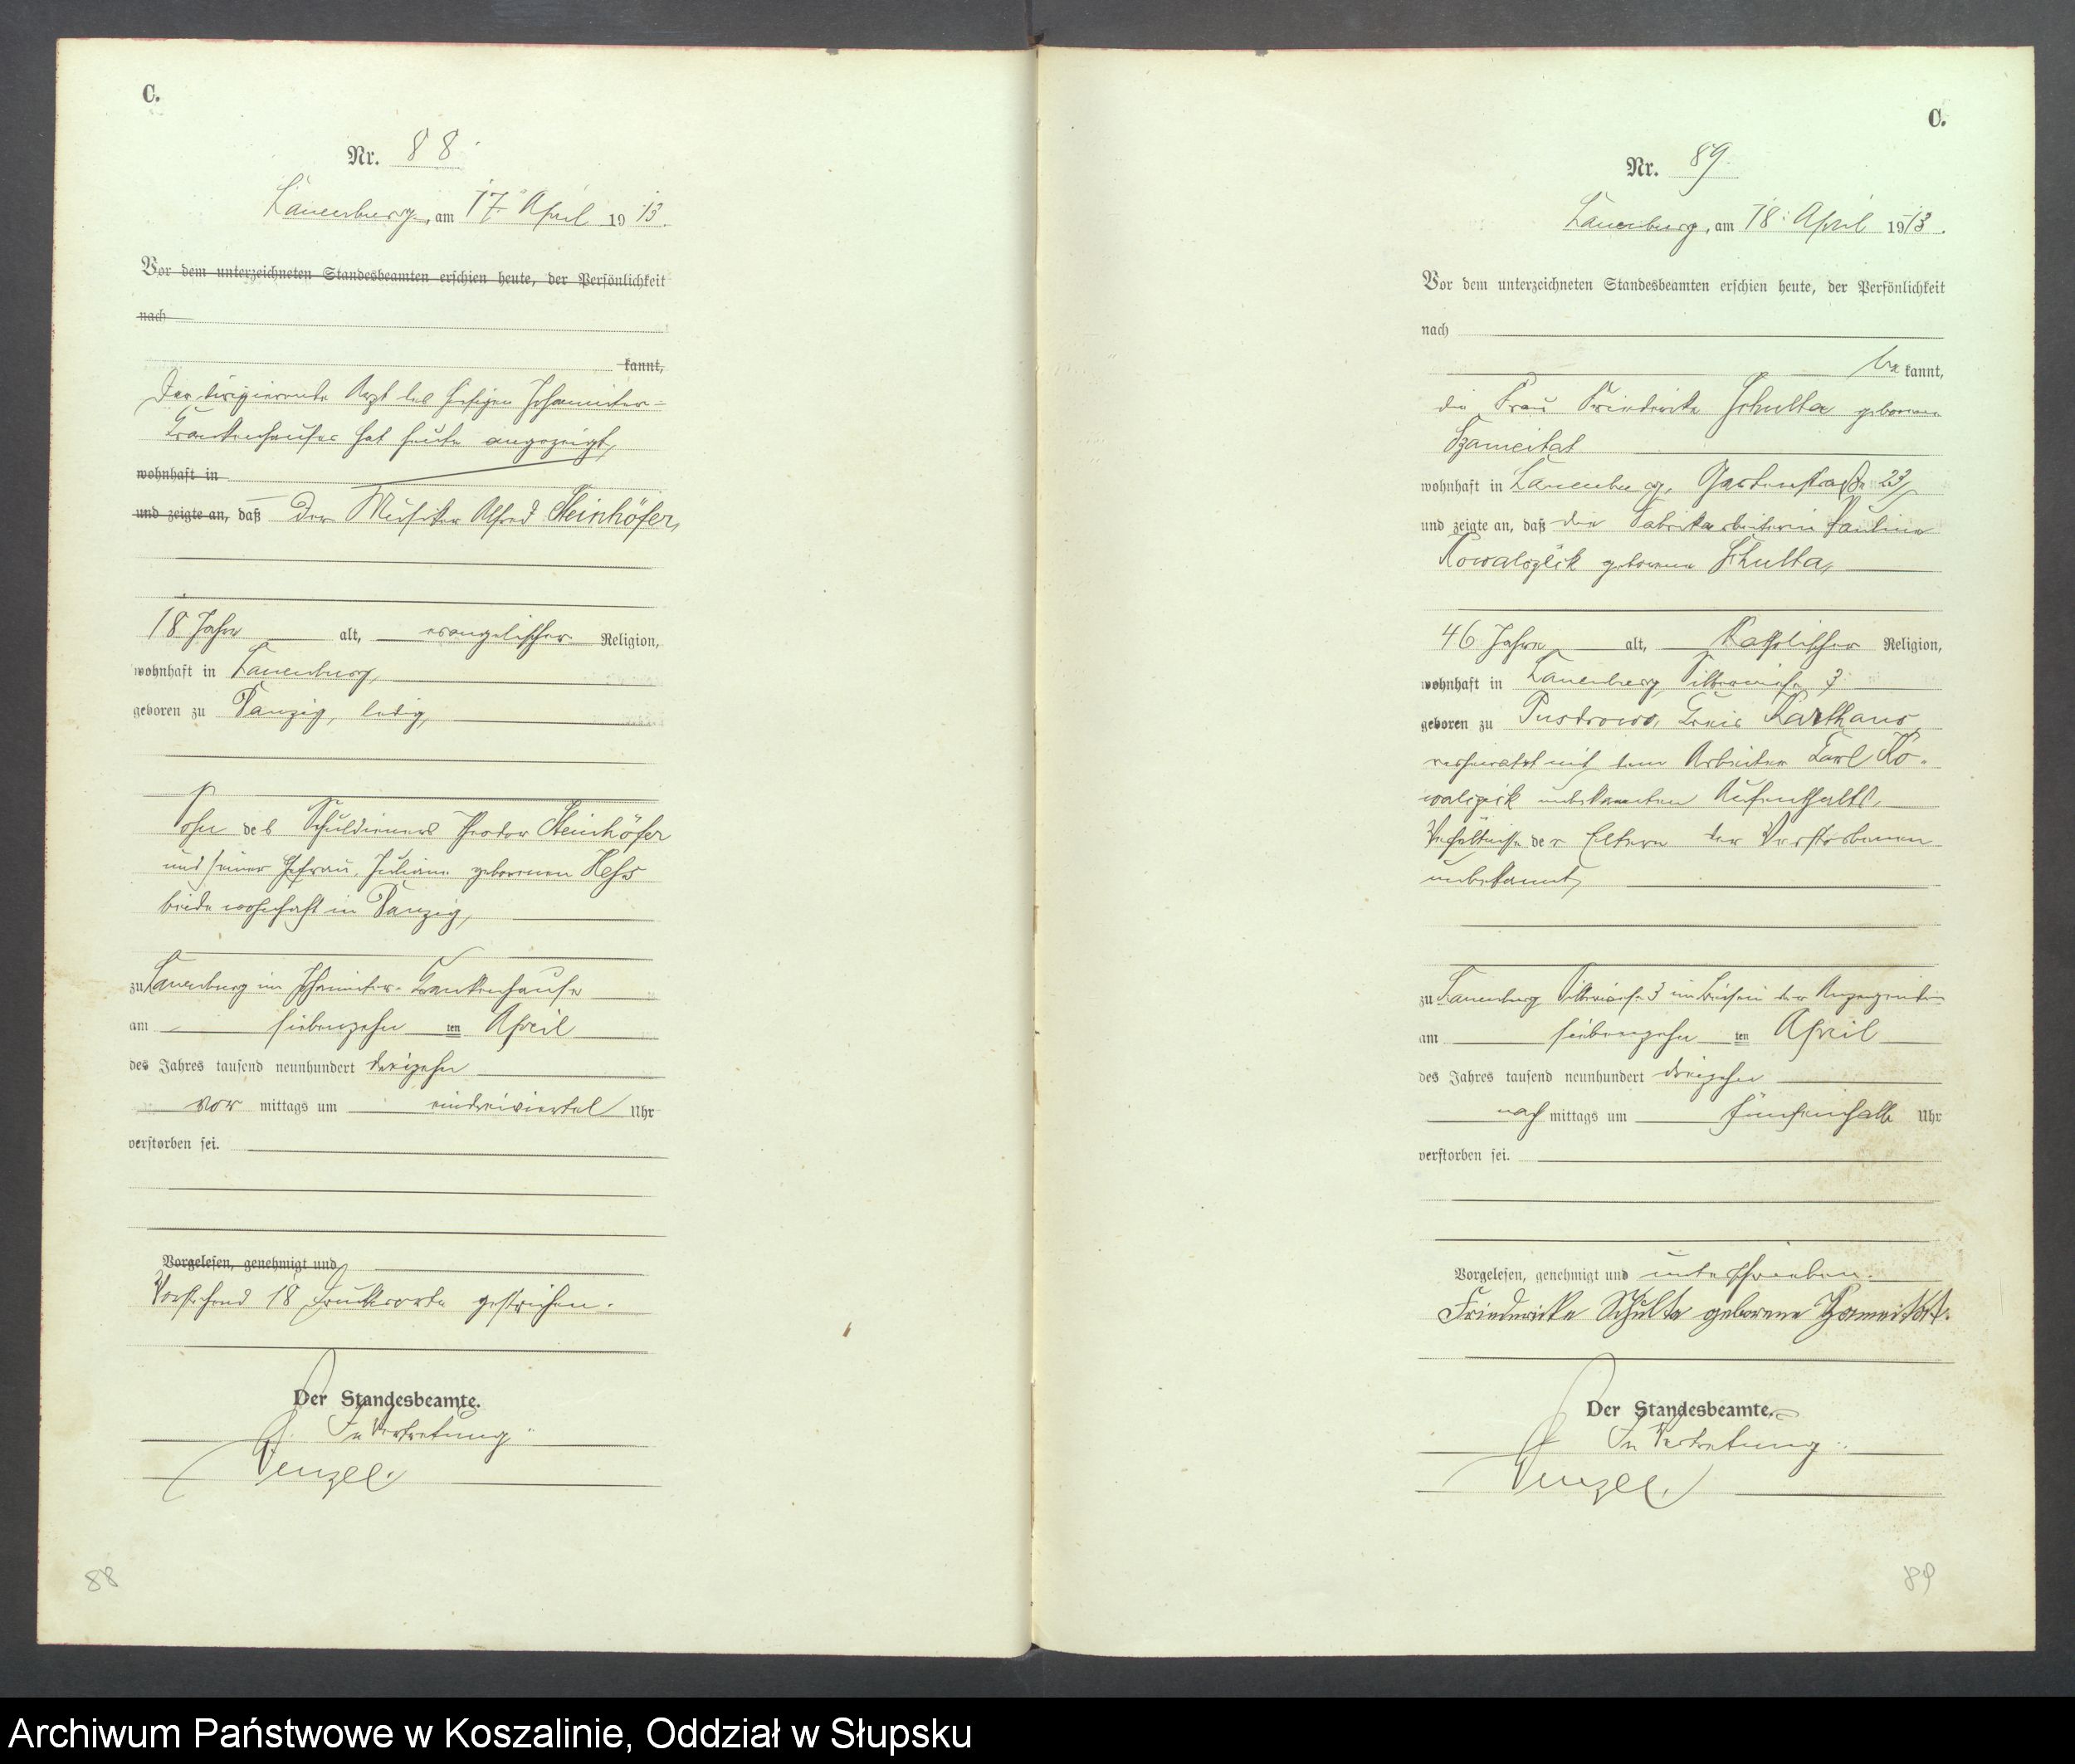 C.
Nr. 88.
Lauenburg, am 17. April 1913.
Vor dem unterzeichneten Standesbeamten erschien heute, der Persönlichkeit
nach
kannt,
Der dirigierende Arzt des hiesigen Johanniter-
Krankenhauses hat heute angezeigt,
wohnhaft in
und zeigte an, daß der Musiker Alfred Steinhöfer,
18 Jahre alt, evangelischer Religion,
wohnhaft in Lauenburg,
geboren zu Danzig, ledig,
Sohn des Schuldieners Theodor Steinhöfer
und seiner Ehefrau, Juliane geborenen Hess
beide wohnhaft in Danzig,
zu Lauenburg im Johanniter-Krankenhause
am siebenzehn ten April
des Jahres tausend neunhundert dreizehn
vor mittags um eindreiviertel Uhr
verstorben sei.
Vorgelesen, genehmigt und
Vorstehend 18 Druckworte gestrichen.
Der Standesbeamte.
In Vertretung:
88
C.
Nr. 89.
Lauenburg, am 18. April 1913.
Vor dem unterzeichneten Standesbeamten erschien heute, der Persönlichkeit
nach
be kannt,
die Frau Friederike Schulta geborene
Szameitat
wohnhaft in Lauenburg, Gartenstraße 23,
und zeigte an, daß die Fabrikarbeiterin Pauline
Kowalszik geborene Schulta,
46 Jahre alt, Katholischer Religion,
wohnhaft in Lauenburg, 3
geboren zu Pustrowo, Kreis Karthaus,
verheiratet mit dem Arbeiter Karl Ko-
walszik unbekannten Aufenthalts,
Verhältnisse der Eltern der Verstorbenen
unbekannt,
zu Lauenburg 3 im Beisein der Anzeigenden
am siebenzehn ten April
des Jahres tausend neunhundert dreizehn
nach mittags um fünfeinhalb Uhr
verstorben sei.
Vorgelesen, genehmigt und unterschrieben.
Friederike Schulta geborene Szameitat.
Der Standesbeamte.
In Vertretung:
89
Archiwum Państwowe w Koszalinie, Oddział w Słupsku